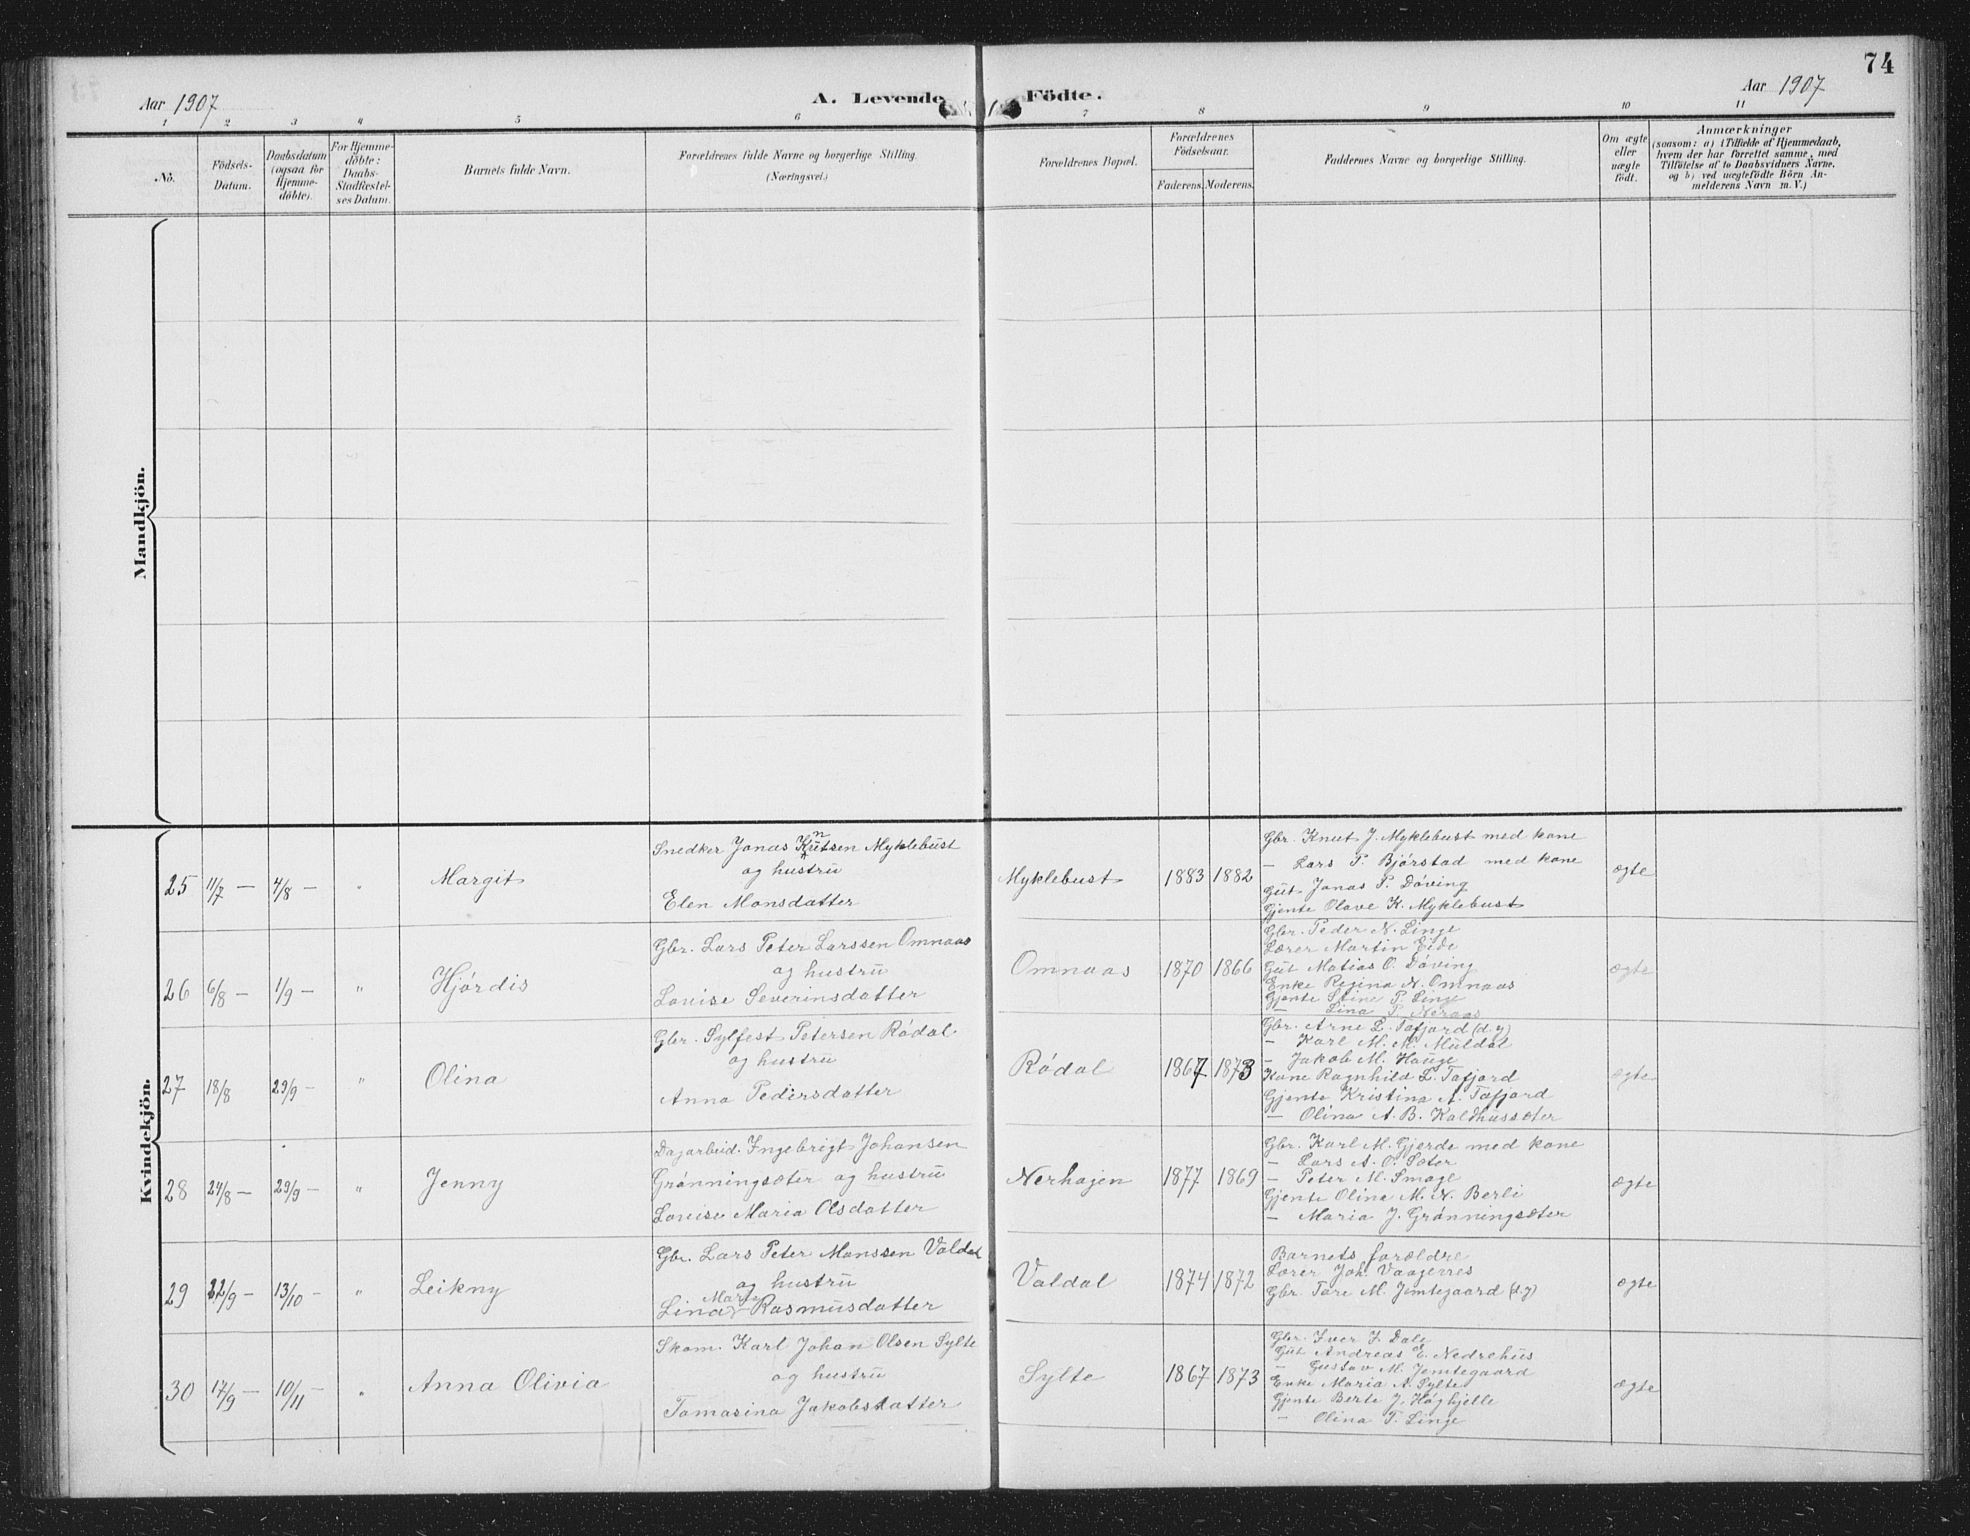 74
Aar 1907
A. Levende Födte.
Aar 1907
1 2 3 4 5 6 7 8 9 10 11
No.
Födsels-
Datum.
Daabsdatum
(ogsaa for
Hjemme-
döbte).
For Hjemme-
döbte:
Daabs-
Stadfæstel-
ses Datum.
Barnets fulde Navn.
Forældrenes fulde Navne og borgerlige Stilling.
(Næringsvei.)
Forældrenes Bopæl.
Forældrenes
Födselsaar.
Faderens. Moderens.
Faddernes Navne og borgerlige Stilling.
Om ægte
eller
uægte
födt.
Anmærkninger
(saasom: a) i Tilfælde af Hjemmedaab,
hvem der har forrettet samme, med
Tilföielse af to Daabsvidners Navne,
og b) ved uægtefödte Börn An-
melderens Navn m. V.)
Mandkjön.
Kvindekjön.
25 11/7 — 4/8 — "
Margit
Snedker Jonas Knutsen Myklebust
og hustru
Elen Monsdatter
Myklebust
1883 1882
Gbr. Knut J. Myklebust med kone
— Lars P. Bjørstad med kone
Gut Jonas P. Døving
Gjente Olave K. Myklebust
ægte
26 6/8 — 1/9 — "
Hjørdis
Gbr. Lars Peter Larssen Omnaas
og hustru
Lovise Severinsdatter
Omnaas
1870 1866
Gbr. Peder N. Linge
Lærer Martin Eide
Gut Matias O. Døving
Enke Regina N. Omnaas
Gjente Stine P. Linge
— Lina P. Neraas
ægte
27 18/8 29/9 — "
Olina
Gbr. Sylfest Petersen Rødal
og hustru
Anna Pedersdatter
Rødal
1867 1873
Gbr. Arne L. Tafjord (d.y)
— Karl M. M. Muldal
— Jakob M. Hauge
Kone Ragnhild L. Tafjord
Gjente Kristina A. Tafjord
— Olina A. B. Kaldhussæter
ægte
28 24/8 — 29/9 — "
Jenny
Dagarbeid. Ingebrigt Johansen
Grønningsæter og hustru
Lovise Maria Olsdatter
Nerhagen
1877 1869
Gbr. Karl M. Gjerde med kone
— Lars A. O. Sæter
— Peter M. Smoge
Gjente Oline M. N. Berli
— Maria J. Grønningsæter
ægte
29 22/9 — 13/10 — "
Leikny
Gbr. Lars Peter Monssen Valdal
og hustru
Marie
Lina Rasmusdatter
Valdal
1874 1872
Barnets forældre
Lærer Joh. Vaagenes
Gbr. Tore M. Jemtegaard (d.y)
ægte
30 17/9 — 10/11 — "
Anna Olivia
Skom. Karl Johan Olsen Sylte
og hustru
Tomasina Jakobsdatter
Sylte
1867 1873
Gbr. Iver I. Dale
Gut Andreas E. Nedrehus
— Gustav M. Jemtegaard
Enke Maria A. Sylte
Gjente Berte J. Høghjelle
— Olina T. Linge
ægte